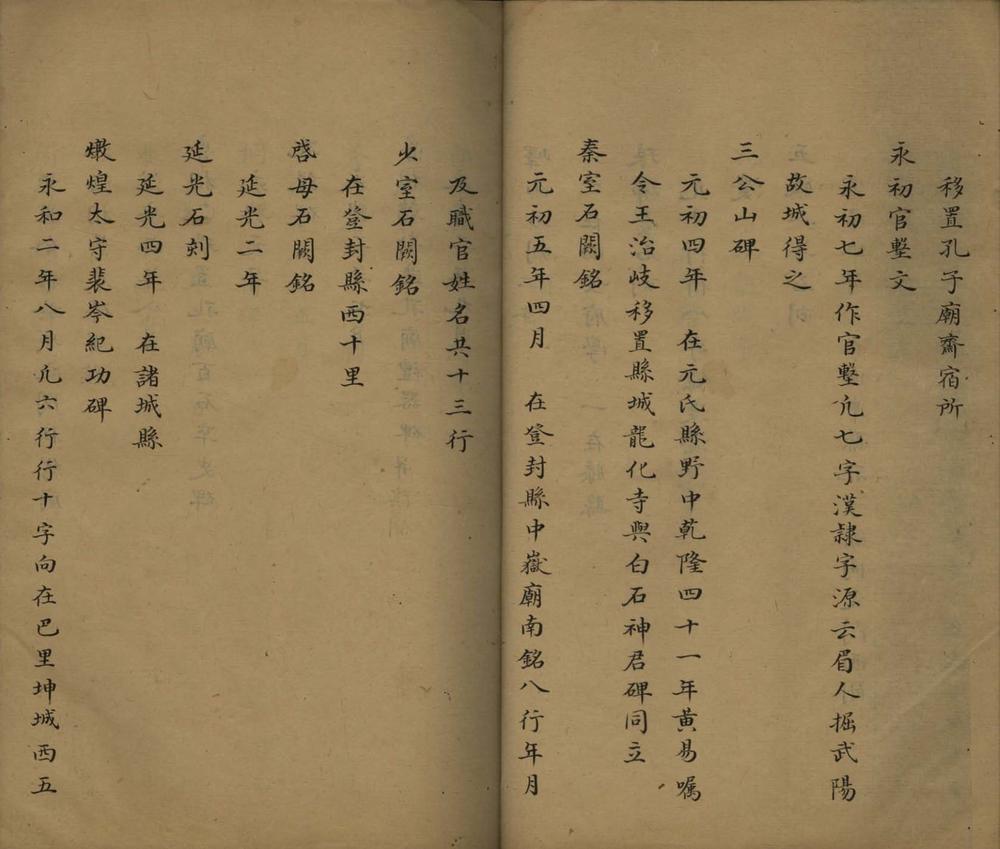 移置孔子廟齋宿所
永初官墼文
永初七年作官墼凢七字漢隷字源云眉人掘武陽
故城得之
三公山碑
元初四年 在元氏縣野中乾隆四十一年黄易嘱
令王治岐移置縣城龍化寺與白石神君碑同立
秦室石闕銘
元初五年四月 在登封縣中嶽廟南銘八行年月
及職官姓名共十三行
少室石闕銘
在登封縣西十里
啓母石闕銘
延光二年
延光石刻
延光四年 在諸城縣
燉煌太守裴岑紀功碑
永和二年八月凢六行行十字向在巴里坤城西五